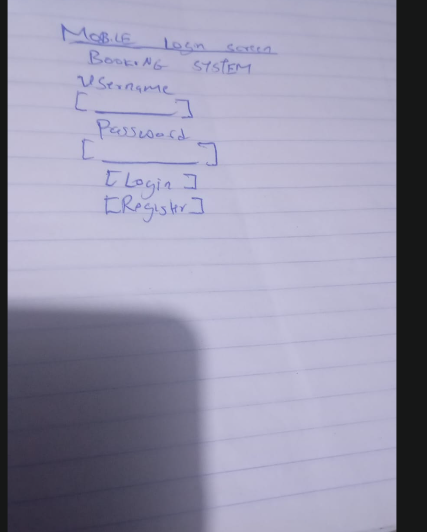 MOBILE Login screen
BOOKING SYSTEM
Username
[ ________ ]
Password
[ __________ ]
[Login ]
[Register]